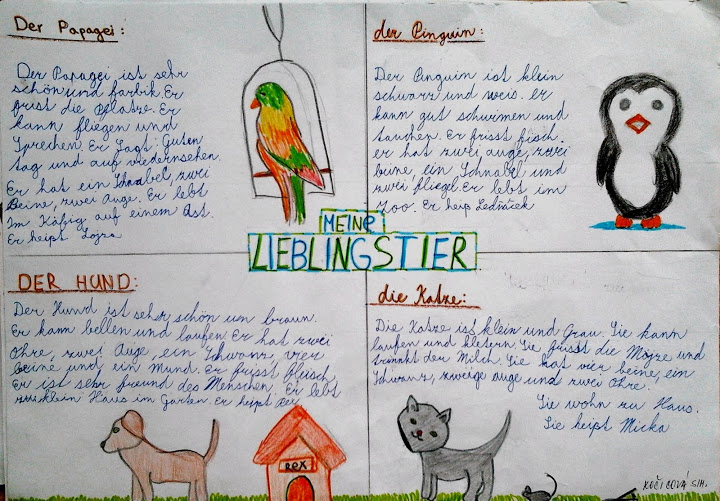 Der Papagei:
Der Papagei ist sehr
schön und farbik. Er
frist die Pflatze. Er
kann fliegen und
Sprechen. Er Sagt: Guten
tag und auf wiedernsehen.
Er hat ein Schnabel, zwei
Beins, zwei Auge. Er lebt
Im Käfig auf einem Ast.
Er heipt Lojza
der Pinguin:
Der Pinguin ist klein
schwarz und weis. er
kann gut schwimen und
tauchen. Er frisst fisch.
er hat zwei auge, zwei
beine, ein Schnabel und
zwei fliegel. Er lebt im
Zoo. Er heip Ledňáček
MEINE
LIEBLINGSTIER
DER HUND:
Der Hund ist sehr schön un braun.
Er kann bellen und laufen. Er hat zwei
Ohre, zwei Auge, ein Schwanz, vier
beine und ein Mund. Er frisst fleisch
Er ist sehr freund des Menschen. Er lebt
klein Haus im Garten. Er heipt
rex
die Katze:
Die Katze ist klein und Grau. Sie kann
laufen und kletern. Sie frisst die Mojze und
trinnkt der Milch. Sie hat vier beine, ein
Schwanz, zweige auge und zwei Ohre.
Sie wohn zu Haus.
Sie heipt Micka
KOČICOVÁ